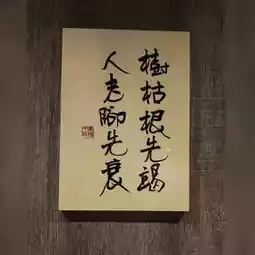 樹枯根先竭
人老腳先衰